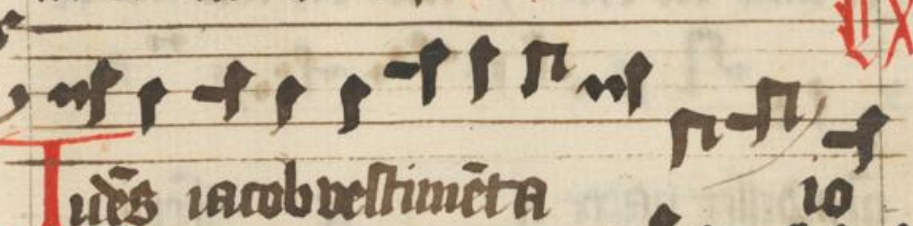 Uidēs iacob vestimēta io